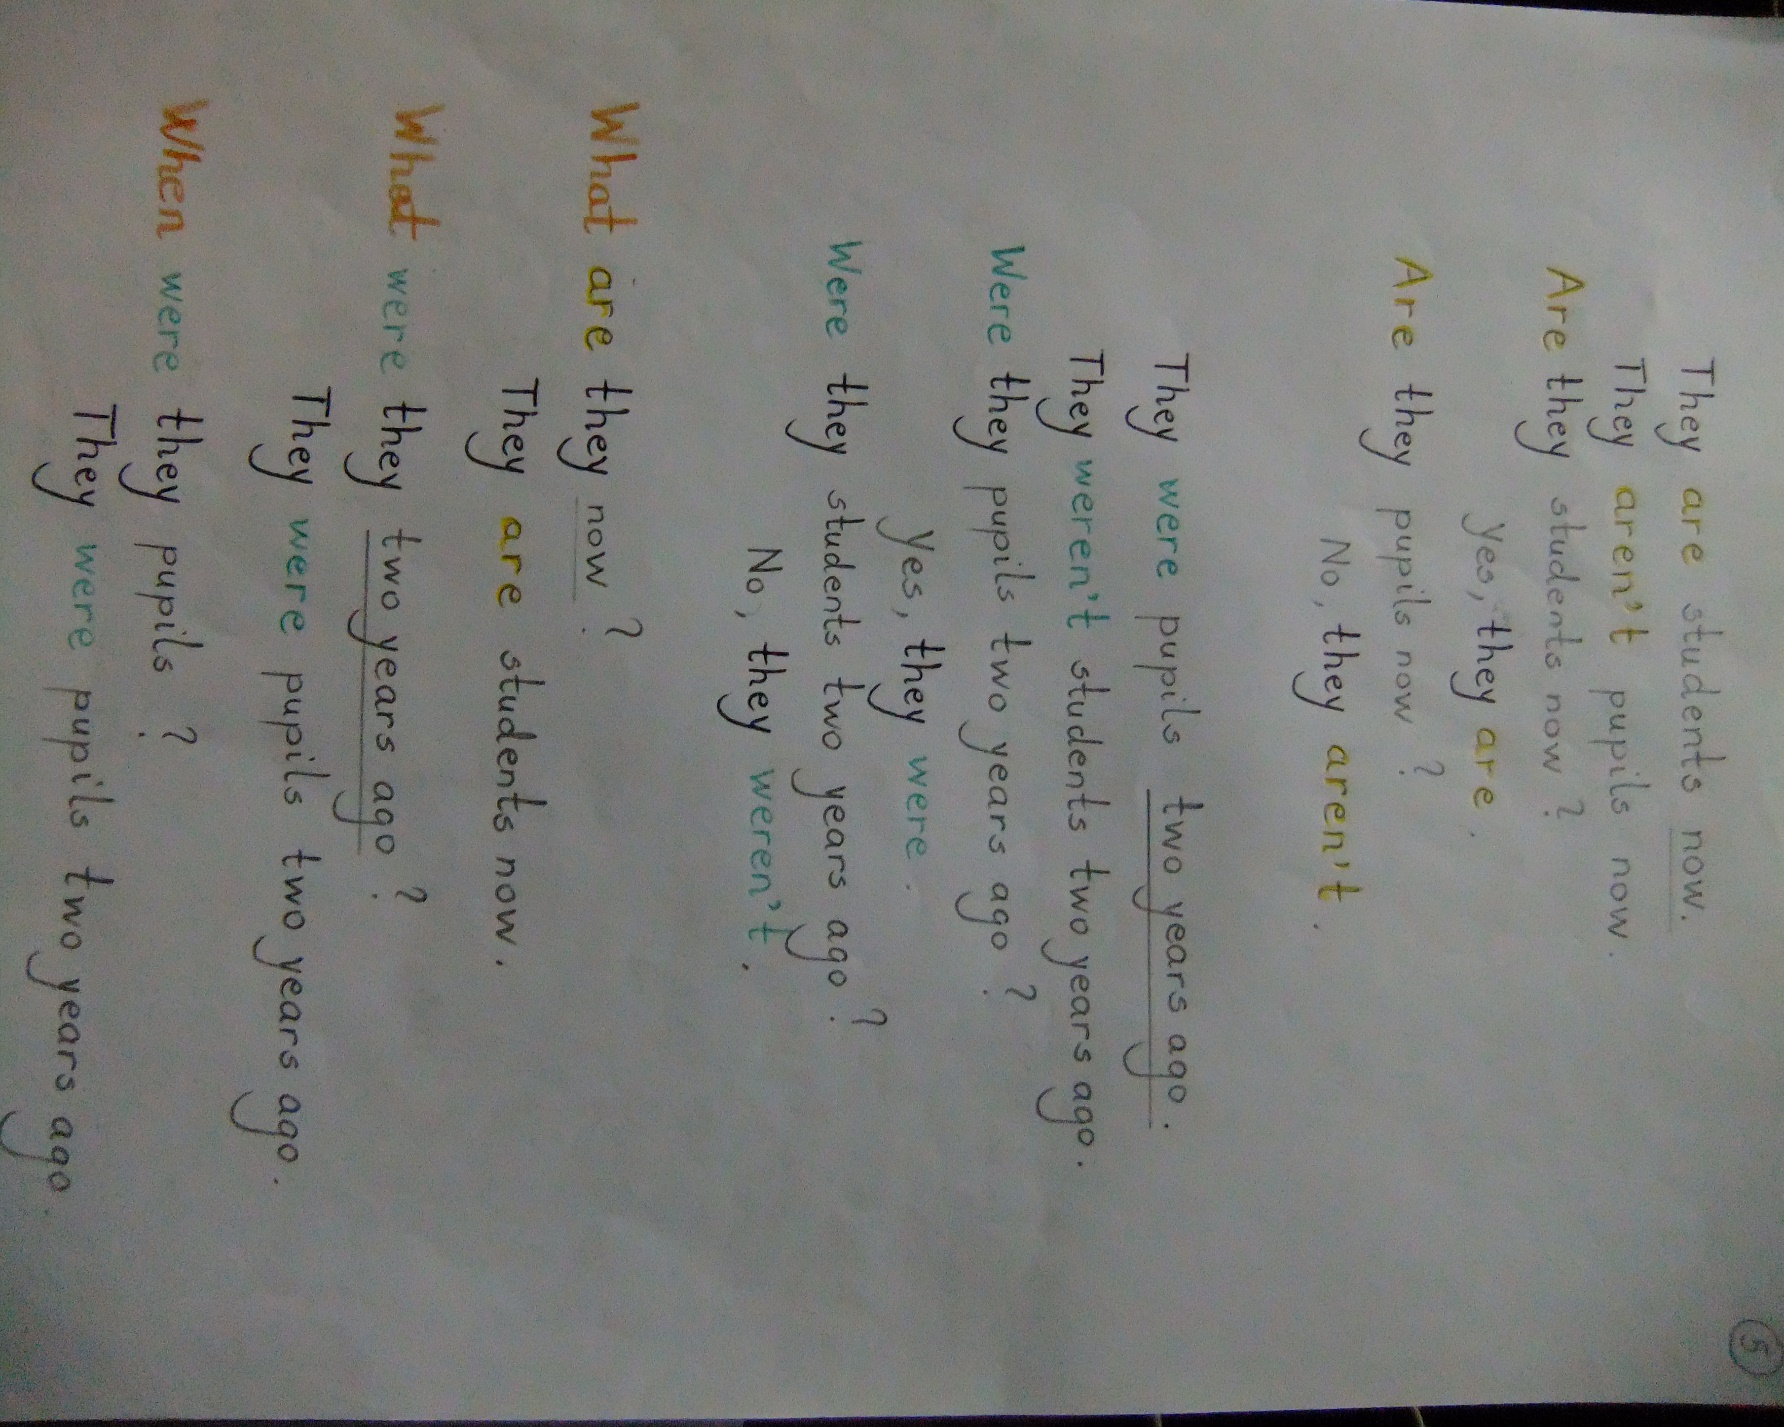 5
They are students now.
They aren't pupils now.
Are they students now?
Yes, they are.
Are they pupils now?
No, they aren't.
They were pupils two years ago.
They weren't students two years ago.
Were they pupils two years ago?
Yes, they were.
Were they students two years ago?
No, they weren't.
What are they now?
They are students now.
What were they two years ago?
They were pupils two years ago.
When were they pupils?
They were pupils two years ago.